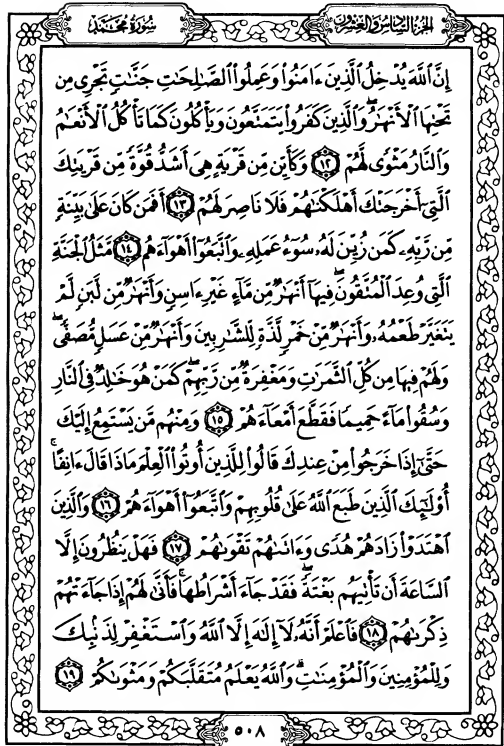 سُورَةُ مُحَمَّدٍ
الجزء السادس والعشرون
إِنَّ ٱللَّهَ يُدْخِلُ ٱلَّذِينَ ءَامَنُوا۟ وَعَمِلُوا۟ ٱلصَّـٰلِحَـٰتِ جَنَّـٰتٍ تَجْرِى مِن
تَحْتِهَا ٱلْأَنْهَـٰرُ ۖ وَٱلَّذِينَ كَفَرُوا۟ يَتَمَتَّعُونَ وَيَأْكُلُونَ كَمَا تَأْكُلُ ٱلْأَنْعَـٰمُ
وَٱلنَّارُ مَثْوًى لَّهُمْ ١٢ وَكَأَيِّن مِّن قَرْيَةٍ هِىَ أَشَدُّ قُوَّةً مِّن قَرْيَتِكَ
ٱلَّتِىٓ أَخْرَجَتْكَ أَهْلَكْنَـٰهُمْ فَلَا نَاصِرَ لَهُمْ ١٣ أَفَمَن كَانَ عَلَىٰ بَيِّنَةٍ
مِّن رَّبِّهِۦ كَمَن زُيِّنَ لَهُۥ سُوٓءُ عَمَلِهِۦ وَٱتَّبَعُوٓا۟ أَهْوَآءَهُم ١٤ مَّثَلُ ٱلْجَنَّةِ
ٱلَّتِى وُعِدَ ٱلْمُتَّقُونَ ۖ فِيهَآ أَنْهَـٰرٌ مِّن مَّآءٍ غَيْرِ ءَاسِنٍ وَأَنْهَـٰرٌ مِّن لَّبَنٍ لَّمْ
يَتَغَيَّرْ طَعْمُهُۥ وَأَنْهَـٰرٌ مِّنْ خَمْرٍ لَّذَّةٍ لِّلشَّـٰرِبِينَ وَأَنْهَـٰرٌ مِّنْ عَسَلٍ مُّصَفًّى ۖ
وَلَهُمْ فِيهَا مِن كُلِّ ٱلثَّمَرَٰتِ وَمَغْفِرَةٌ مِّن رَّبِّهِمْ ۖ كَمَنْ هُوَ خَـٰلِدٌ فِى ٱلنَّارِ
وَسُقُوا۟ مَآءً حَمِيمًا فَقَطَّعَ أَمْعَآءَهُمْ ١٥ وَمِنْهُم مَّن يَسْتَمِعُ إِلَيْكَ
حَتَّىٰٓ إِذَا خَرَجُوا۟ مِنْ عِندِكَ قَالُوا۟ لِلَّذِينَ أُوتُوا۟ ٱلْعِلْمَ مَاذَا قَالَ ءَانِفًا ۚ
أُو۟لَـٰٓئِكَ ٱلَّذِينَ طَبَعَ ٱللَّهُ عَلَىٰ قُلُوبِهِمْ وَٱتَّبَعُوٓا۟ أَهْوَآءَهُمْ ١٦ وَٱلَّذِينَ
ٱهْتَدَوْا۟ زَادَهُمْ هُدًى وَءَاتَىٰهُمْ تَقْوَىٰهُمْ ١٧ فَهَلْ يَنظُرُونَ إِلَّا
ٱلسَّاعَةَ أَن تَأْتِيَهُم بَغْتَةً ۖ فَقَدْ جَآءَ أَشْرَاطُهَا ۚ فَأَنَّىٰ لَهُمْ إِذَا جَآءَتْهُمْ
ذِكْرَىٰهُمْ ١٨ فَٱعْلَمْ أَنَّهُۥ لَآ إِلَـٰهَ إِلَّا ٱللَّهُ وَٱسْتَغْفِرْ لِذَنۢبِكَ
وَلِلْمُؤْمِنِينَ وَٱلْمُؤْمِنَـٰتِ ۗ وَٱللَّهُ يَعْلَمُ مُتَقَلَّبَكُمْ وَمَثْوَىٰكُمْ ١٩
٥٠٨